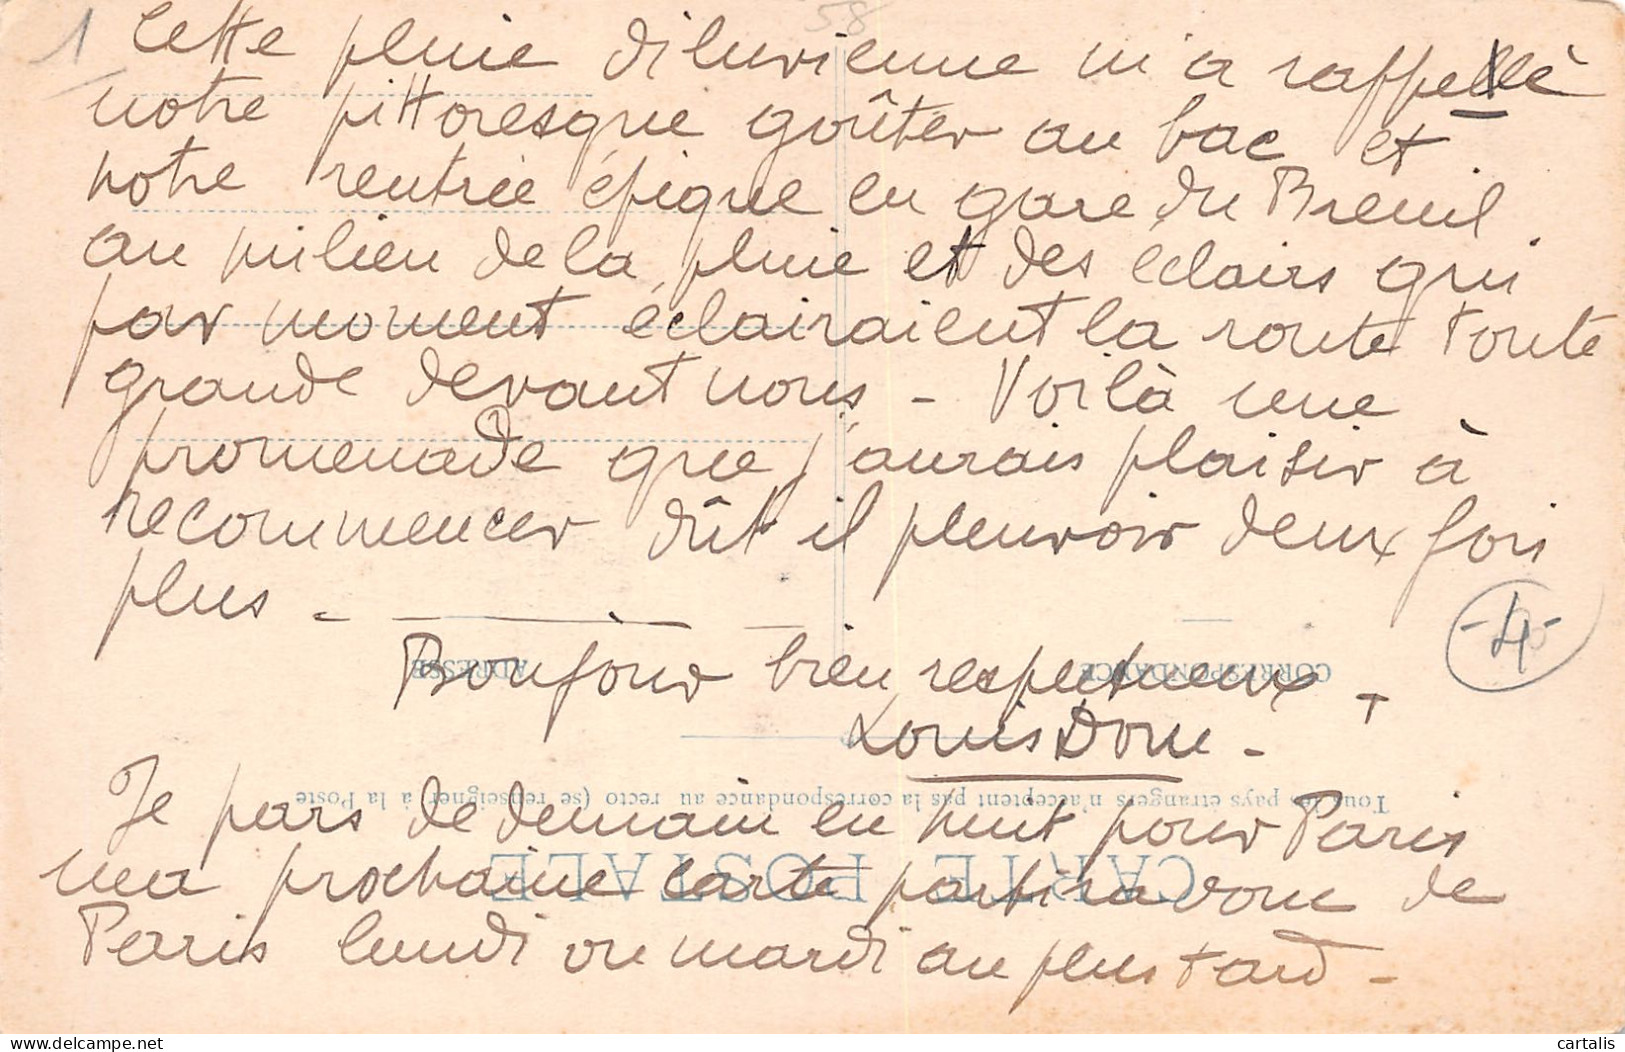 1 58
Cette pluie diluvienne m'a rappelé
notre pittoresque goûter au bac et
notre rentrée épique en gare du Breuil
au milieu de la pluie et des éclairs qui
par moment éclairaient la route toute
grande devant nous - Voilà une
promenade que j'aurais plaisir à
recommencer dût il pleuvoir deux fois
plus -
-4-
Bonjour bien respectueux -
Louis
Je pars de demain en huit pour Paris
ma prochaine carte partira donc de
Paris lundi ou mardi au plus tard -
CARTE POSTALE
Tous les pays étrangers n'acceptent pas la correspondance au recto (se renseigner à la Poste
CORRESPONDANCE ADRESSE
delcampe.net
cartalis